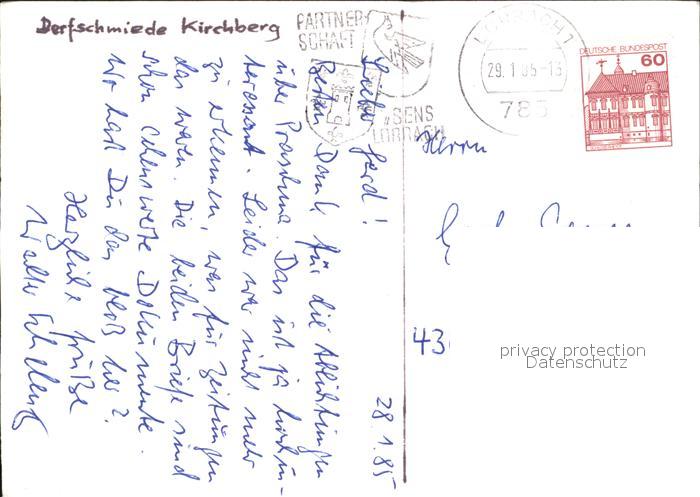 Dorfschmiede Kirchberg
PARTNER-
SCHAFT
SENS
LÖRRACH
LÖRRACH 1
29.1.85-15
785
DEUTSCHE BUNDESPOST
60
28.1.85
Lieber Gerd!
Besten Dank für die Ablichtungen
über Prastuna. Das ist ja hochin-
teressant. Leider war nicht mehr
zu erkennen, was für Zeitungen
das waren. Die beiden Briefe sind
schon sehenswerte Dokumente.
Wo hast Du das bloß her?
Herzliche Grüße
Walter
Herrn
43
privacy protection
Datenschutz